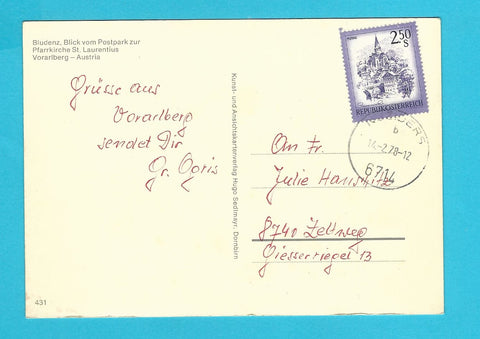 Bludenz, Blick vom Postpark zur
Pfarrkirche St. Laurentius
Vorarlberg – Austria
Grüsse aus
Vorarlberg
sendet Dir
Gr. Opris
Kunst- und Ansichtskartenverlag Hugo Sedlmayr, Dornbirn
2.50
S
REPUBLIK ÖSTERREICH
b
14.-2.78-12
6714
An Fr.
Julie
8740 Zeltweg
Giesserriegel 13
431